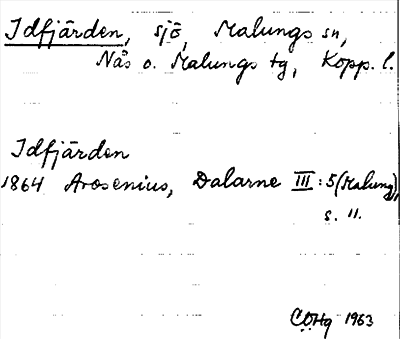 Idfjärden, sjö, Malungs sn,
Nås o. Malungs tg, Kopp. l.
Idfjärden
1864 Arosenius, Dalarne III:5 (Malung),
s. 11.
CÖHg 1963